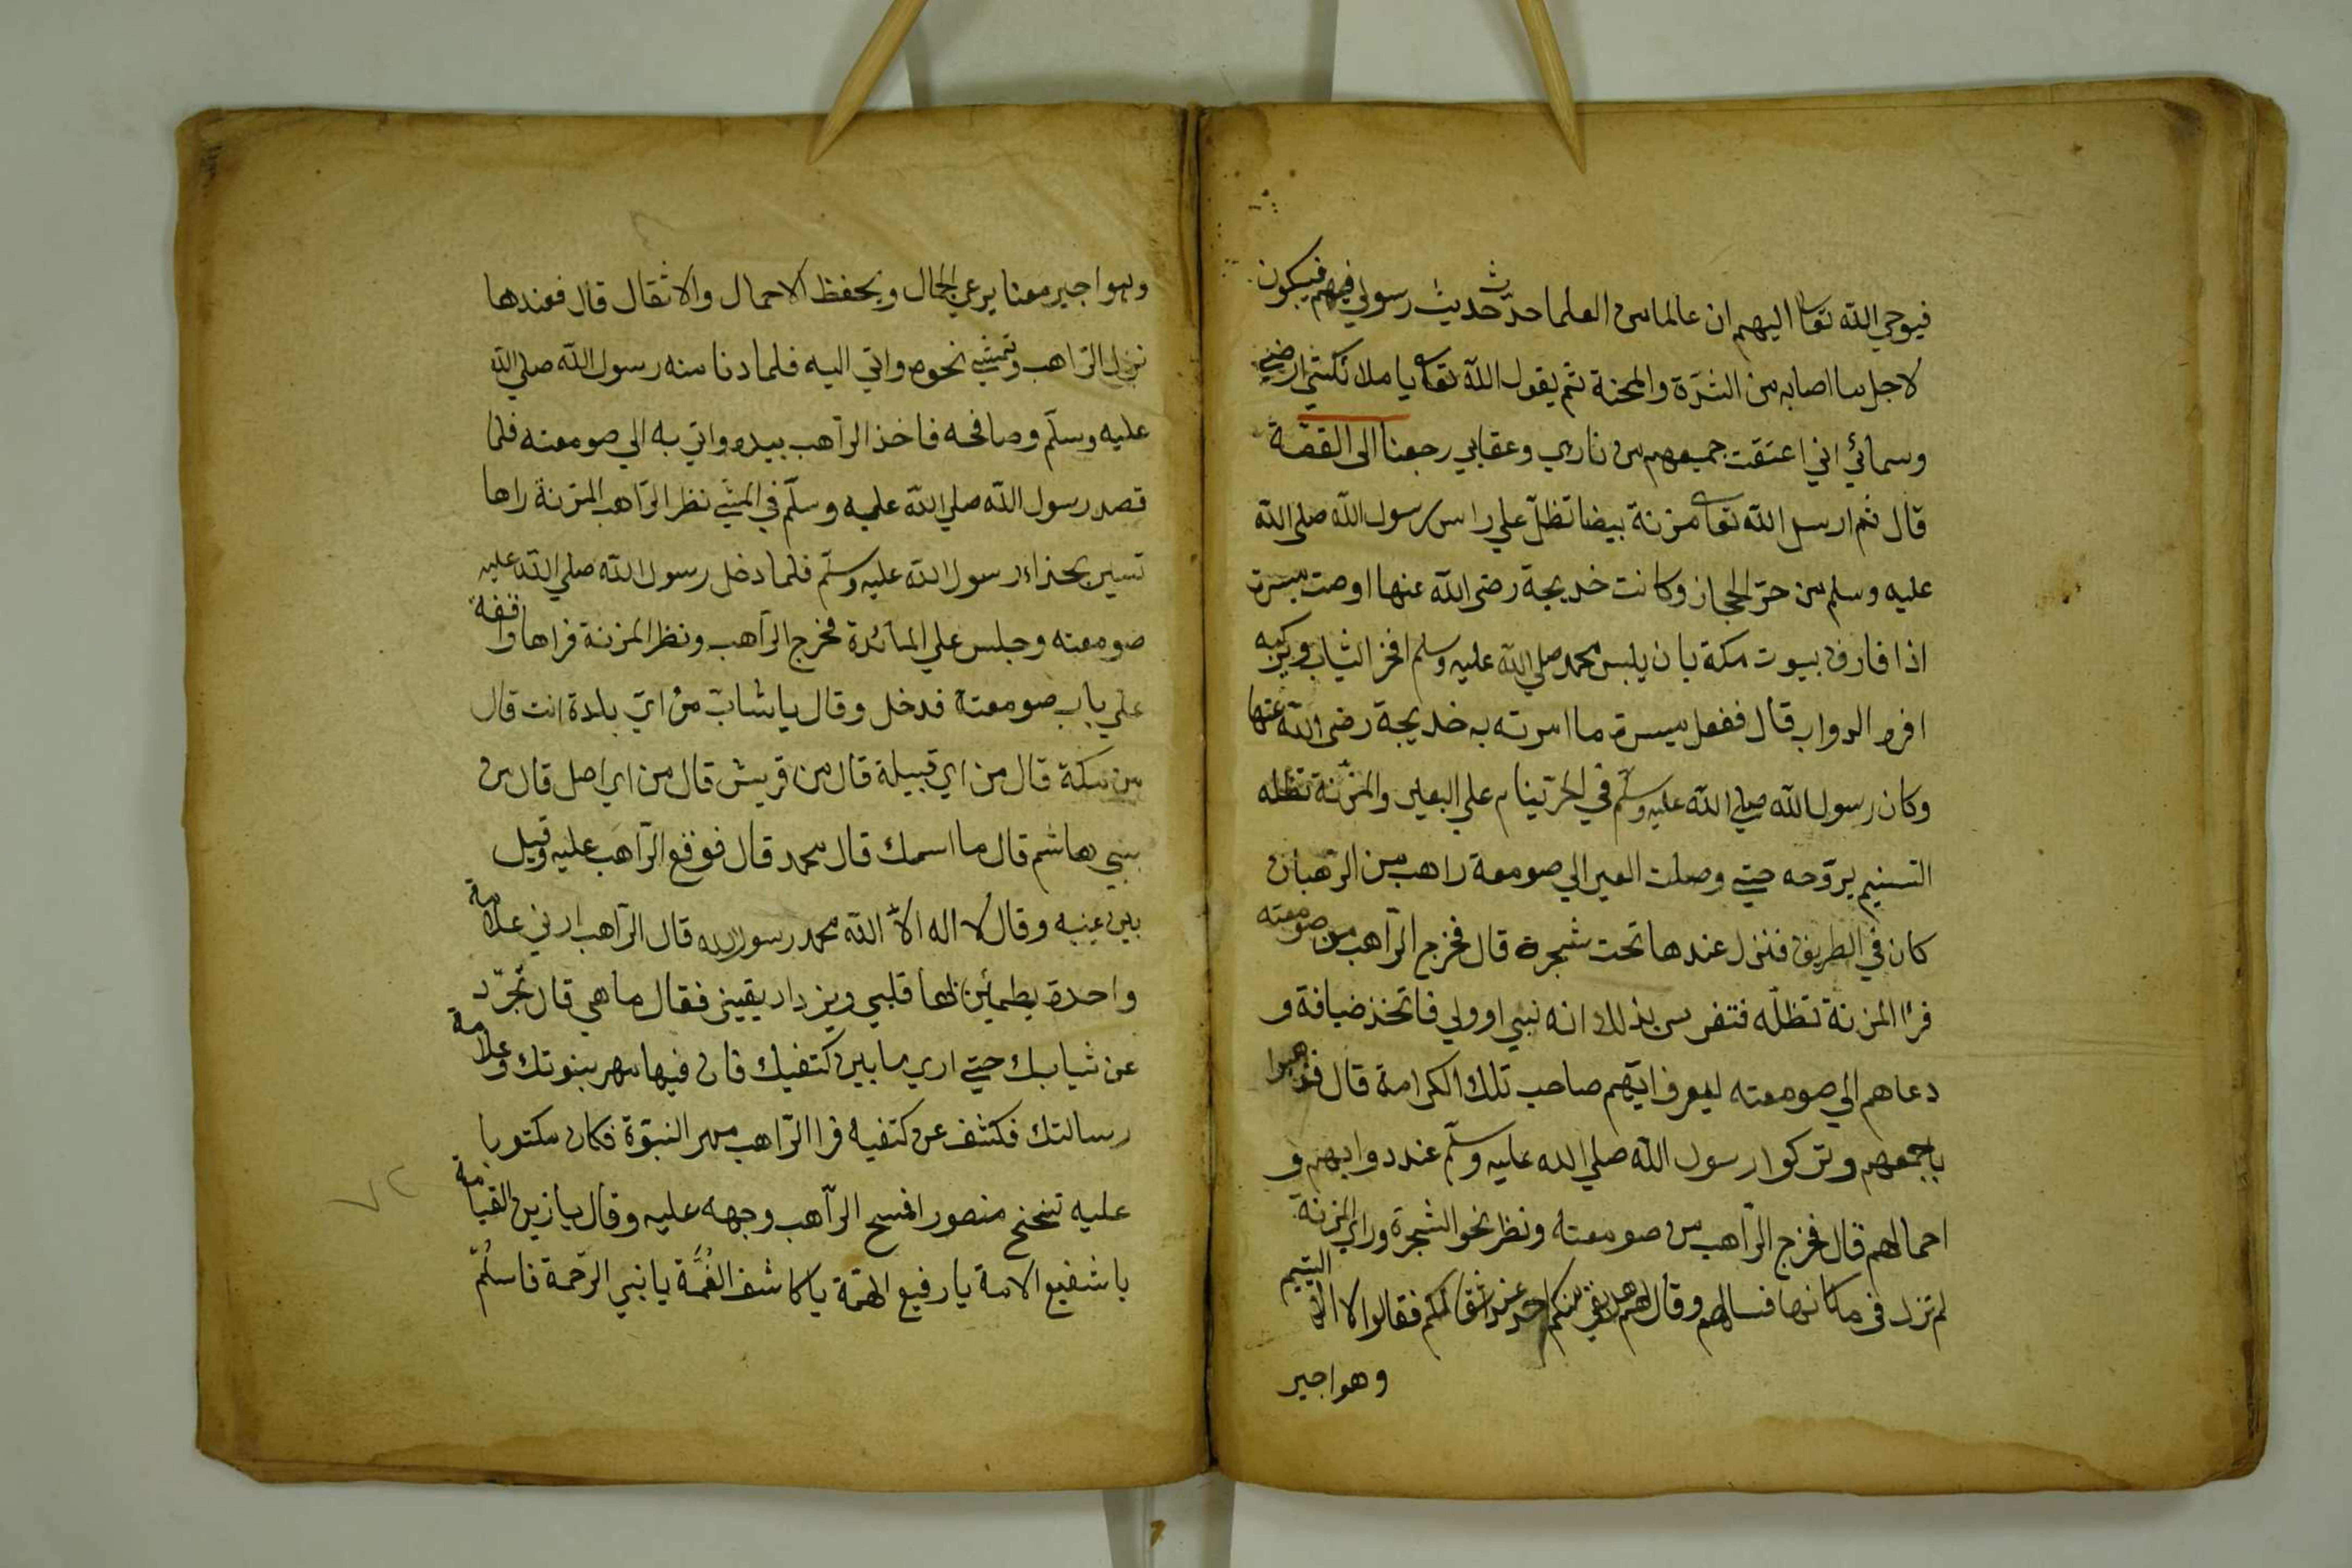 فيوحي الله تعالى اليهم ان عالما من العلما حدّث حديث رسولي فيهم فيبكون
لاجل ما اصابه من الشدّة والمحنة ثم يقول الله تعالى يا ملائكتي ارضي
وسمائي اني اعتقت جميعهم من ناري وعقابي رجعنا الى القصّة
قال ثم ارسل الله تعالى مزنة بيضا تظلّ علي راس رسول الله صلى الله
عليه وسلم من حرّ الحجاز وكانت خديجة رضى الله عنها اوصت ميسرة
اذا فارق بيوت مكة بان يلبس محمد صلي الله عليه وسلم افخر الثياب ويركبه
افره الدواب قال ففعل ميسرة ما امرته به خديجة رضى الله عنها
وكان رسول الله صلي الله عليه وسلّم في الحرّ ينام علي البعير والمزنة تظله
النسيم يروّحه حتي وصلت العير الي صومعة راهب من الرهبان
كان في الطريق فنزل عندها تحت شجرة قال فخرج الرّاهب من صومعته
فرا المزنة تظلّه فتفرس بذلك انه نبي او ولي فاتخذ ضيافة و
دعاهم الي صومعته ليعرف ايّهم صاحب تلك الكرامة قال فذهبوا
باجمعهم وتركوا رسول الله صلي الله عليه وسلّم عند دوابهم و
احمالهم قال فخرج الرّاهب من صومعته ونظر نحو الشجرة وراي المزنة
لم تزل في مكانها فسالهم وقال لهم هل بقي منكم احد عند اثقالكم فقالوا لا الا اليتيم
وهو اجير
وهو اجير معنا يرعي الجمال ويحفظ الاحمال والاثقال قال فعندها
نزل الرّاهب وتمشي نحوه واتي اليه فلما دنا منه رسول الله صلي الله
عليه وسلّم وصافحه فاخذ الرّاهب بيده واتي به الي صومعته فلما
قصد رسول الله صلي الله عليه وسلّم في المشي نظر الرّاهب المزنة راها
تسير بحذاء رسول الله عليه وسلّم فلما دخل رسول الله صلي الله عليه
صومعته وجلس علي المائدة فخرج الرّاهب ونظر المزنة فراها واقفة
علي باب صومعته فدخل وقال يا شابّ من ايّ بلدة انت قال
من مكة قال من اي قبيلة قال من قريش قال من اي اصل قال من
بني هاشم قال ما اسمك قال محمد قال فوقع الرّاهب عليه وقبل
بين عينيه وقال لا اله الاّ الله محمد رسول الله قال الرّاهب ارني علامة
واحدة يطمئن لها قلبي ويزداد يقيني فقال ما هي قال تجرّد
عن ثيابك حتي اري ما بين كتفيك فان فيها مهر بنبوتك وعلامة
رسالتك فكشف عن كتفيه فرا الرّاهب مهر النبوّة فكان مكتوبا
عليه تنحنح منصور افمسح الرّاهب وجهه عليه وقال يا زين القيامة
يا شفيع الامة يا رفيع الهمّة يا كاشف الغُمَّة يا نبي الرحمة فاسلم
٧٢